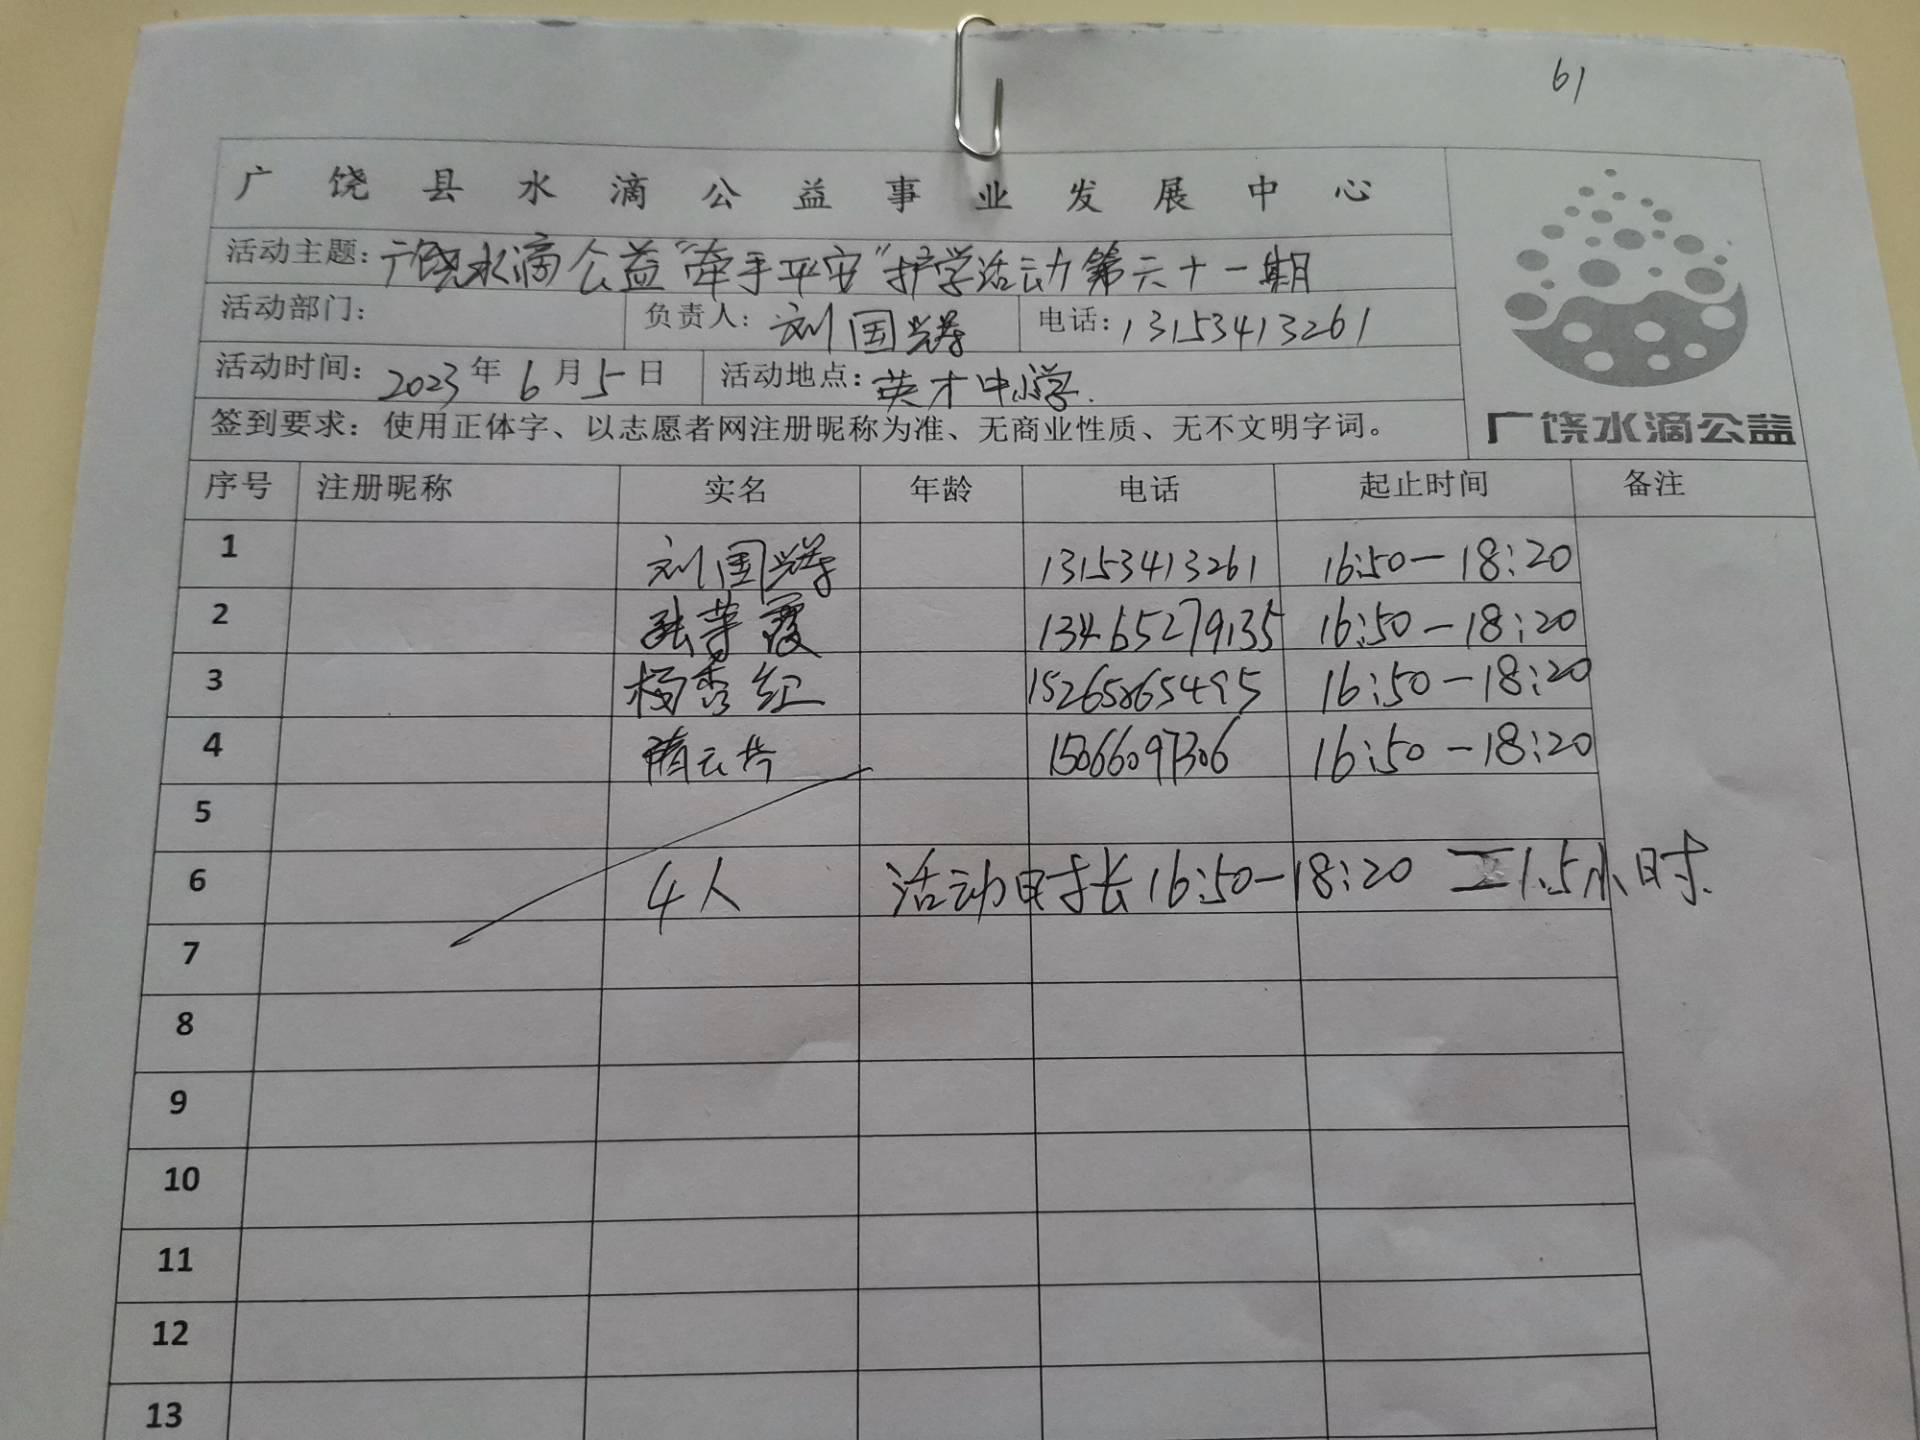 61
广饶县水滴公益事业发展中心
活动主题:广饶水滴公益"牵手平安"护学活动第六十一期
活动部门: 负责人: 刘国辉 电话:13153413261
活动时间:2023年6月5日 活动地点:英才中小学.
签到要求:使用正体字、以志愿者网注册昵称为准、无商业性质、无不文明字词。
广饶水滴公益
序号 注册昵称 实名 年龄 电话 起止时间 备注
1 刘国辉 13153413261 16:50-18:20
2 张荣霞 13465279135 16:50-18:20
3 杨秀红 15265865495 16:50-18:20
4 隋云 15066097306 16:50-18:20
5
6 4人 活动时长16:50-18:20 二1.5小时.
7
8
9
10
11
12
13